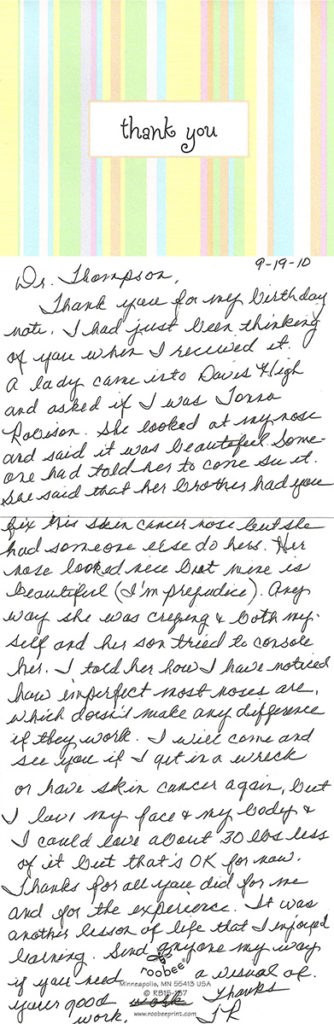 thank you
9-19-10
Dr. Thompson,
Thank you for my birthday
note. I had just been thinking
of you when I received it.
A lady came into Davis High
and asked if I was
She looked at my nose
and said it was beautiful. Some-
one had told her to come see it.
She said that her brother had you
fix his skin cancer nose but she
had someone else do hers. Her
nose looked nice but mine is
beautiful (I'm prejudice). Any
way she was crying & both my-
self and her son tried to console
her. I told her how I have noticed
how imperfect most noses are,
which doesn't make any difference
if they work. I will come and
see you if I get in a wreck
or have skin cancer again, but
I love my face & my body &
I could love about 30 lbs less
of it but that's OK for now.
Thanks for all you did for me
and for the experience. It was
another lesson of life that I enjoyed
learning. Send anyone my way
if you need a visual of
your good work
work. Thanks
roobee
Minneapolis, MN 55413 USA
www.roobeeprint.com